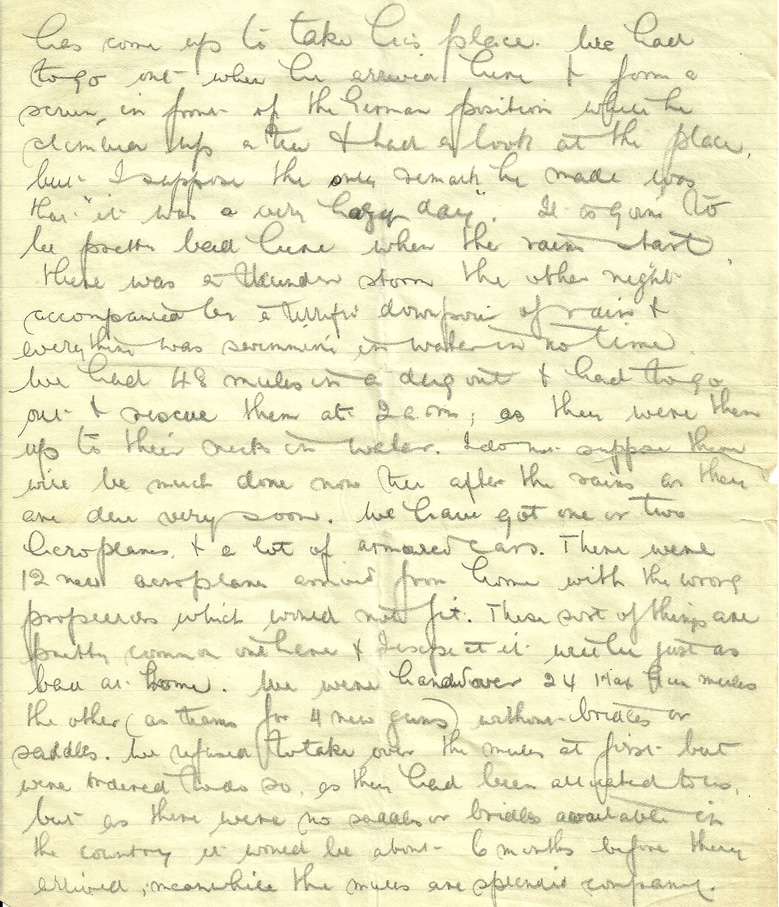 has come up to take his place. We had
to go out when he arrived here & form a
screen, in front of the German position while he
climbed up a tree & had a look at the place,
but I suppose the only remark he made was
that "it was a very hazy day". It is going to
be pretty bad here when the rains start.
there was a thunder storm the other night
accompanied by a terrific downpour of rain &
everything was swimming in water in no time.
We had 48 mules in a dug out & had to go
out & rescue them at 2 a.m, as they were then
up to their necks in water. I do not suppose there
will be much done now till after the rains as they
are due very soon. We have got one or two
Aeroplanes, & a lot of armoured cars. There were
12 new aeroplanes arrived from home with the wrong
propellers which would not fit. These sort of things are
pretty common out here & I expect it will be just as
bad at home. We were handed over 24 Max Gun mules
the other (as teams for 4 new guns) without bridles or
saddles. We refused to take over the mules at first but
were ordered to do so, as they had been allocated to us,
but as there were no saddles or bridles available in
the country it would be about 6 months before they
arrived, meanwhile the mules are splendid company.